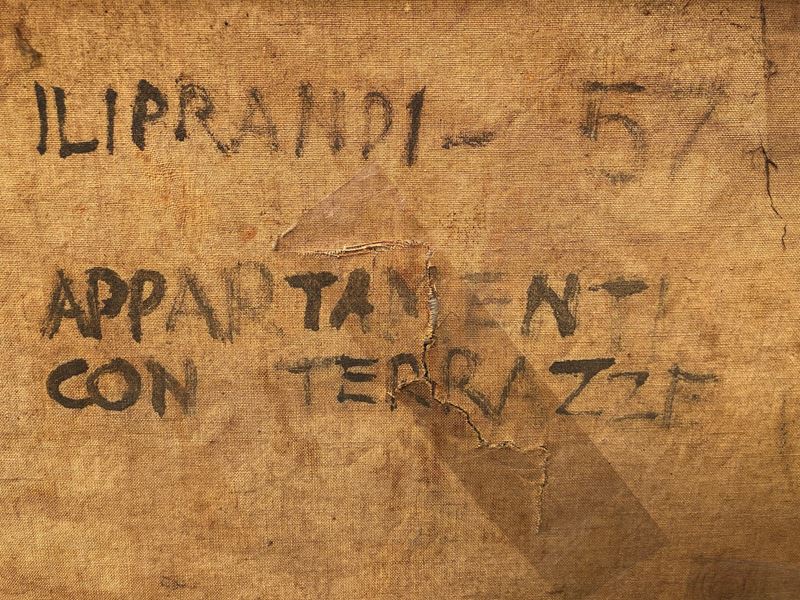 ILIPRANDI - 57
APPARTAMENTI
CON TERRAZZE